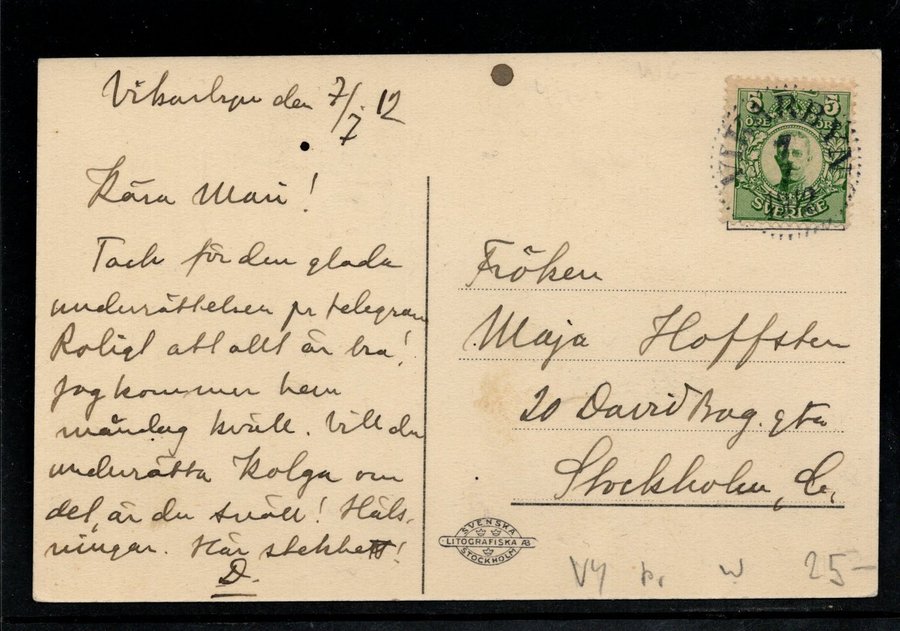 Vikarbyn den 7/7 12
Kära Mari!
Tack för den glada
underättelsen pr telegram
Roligt att allt är bra!
Jag kommer hem
måndag kväll. Vill du
underätta Kolga om
det, är du snäll! Häls-
ningar. Här stekhett!
D.
5 5
ÖRE ÖRE
SVERIGE
VIKARBYN
7
Fröken
Maja Hoffsten
20 David Bag. gta
Stockholm, C.
SVENSKA
LITOGRAFISKA AB
STOCKHOLM
VY W 25-